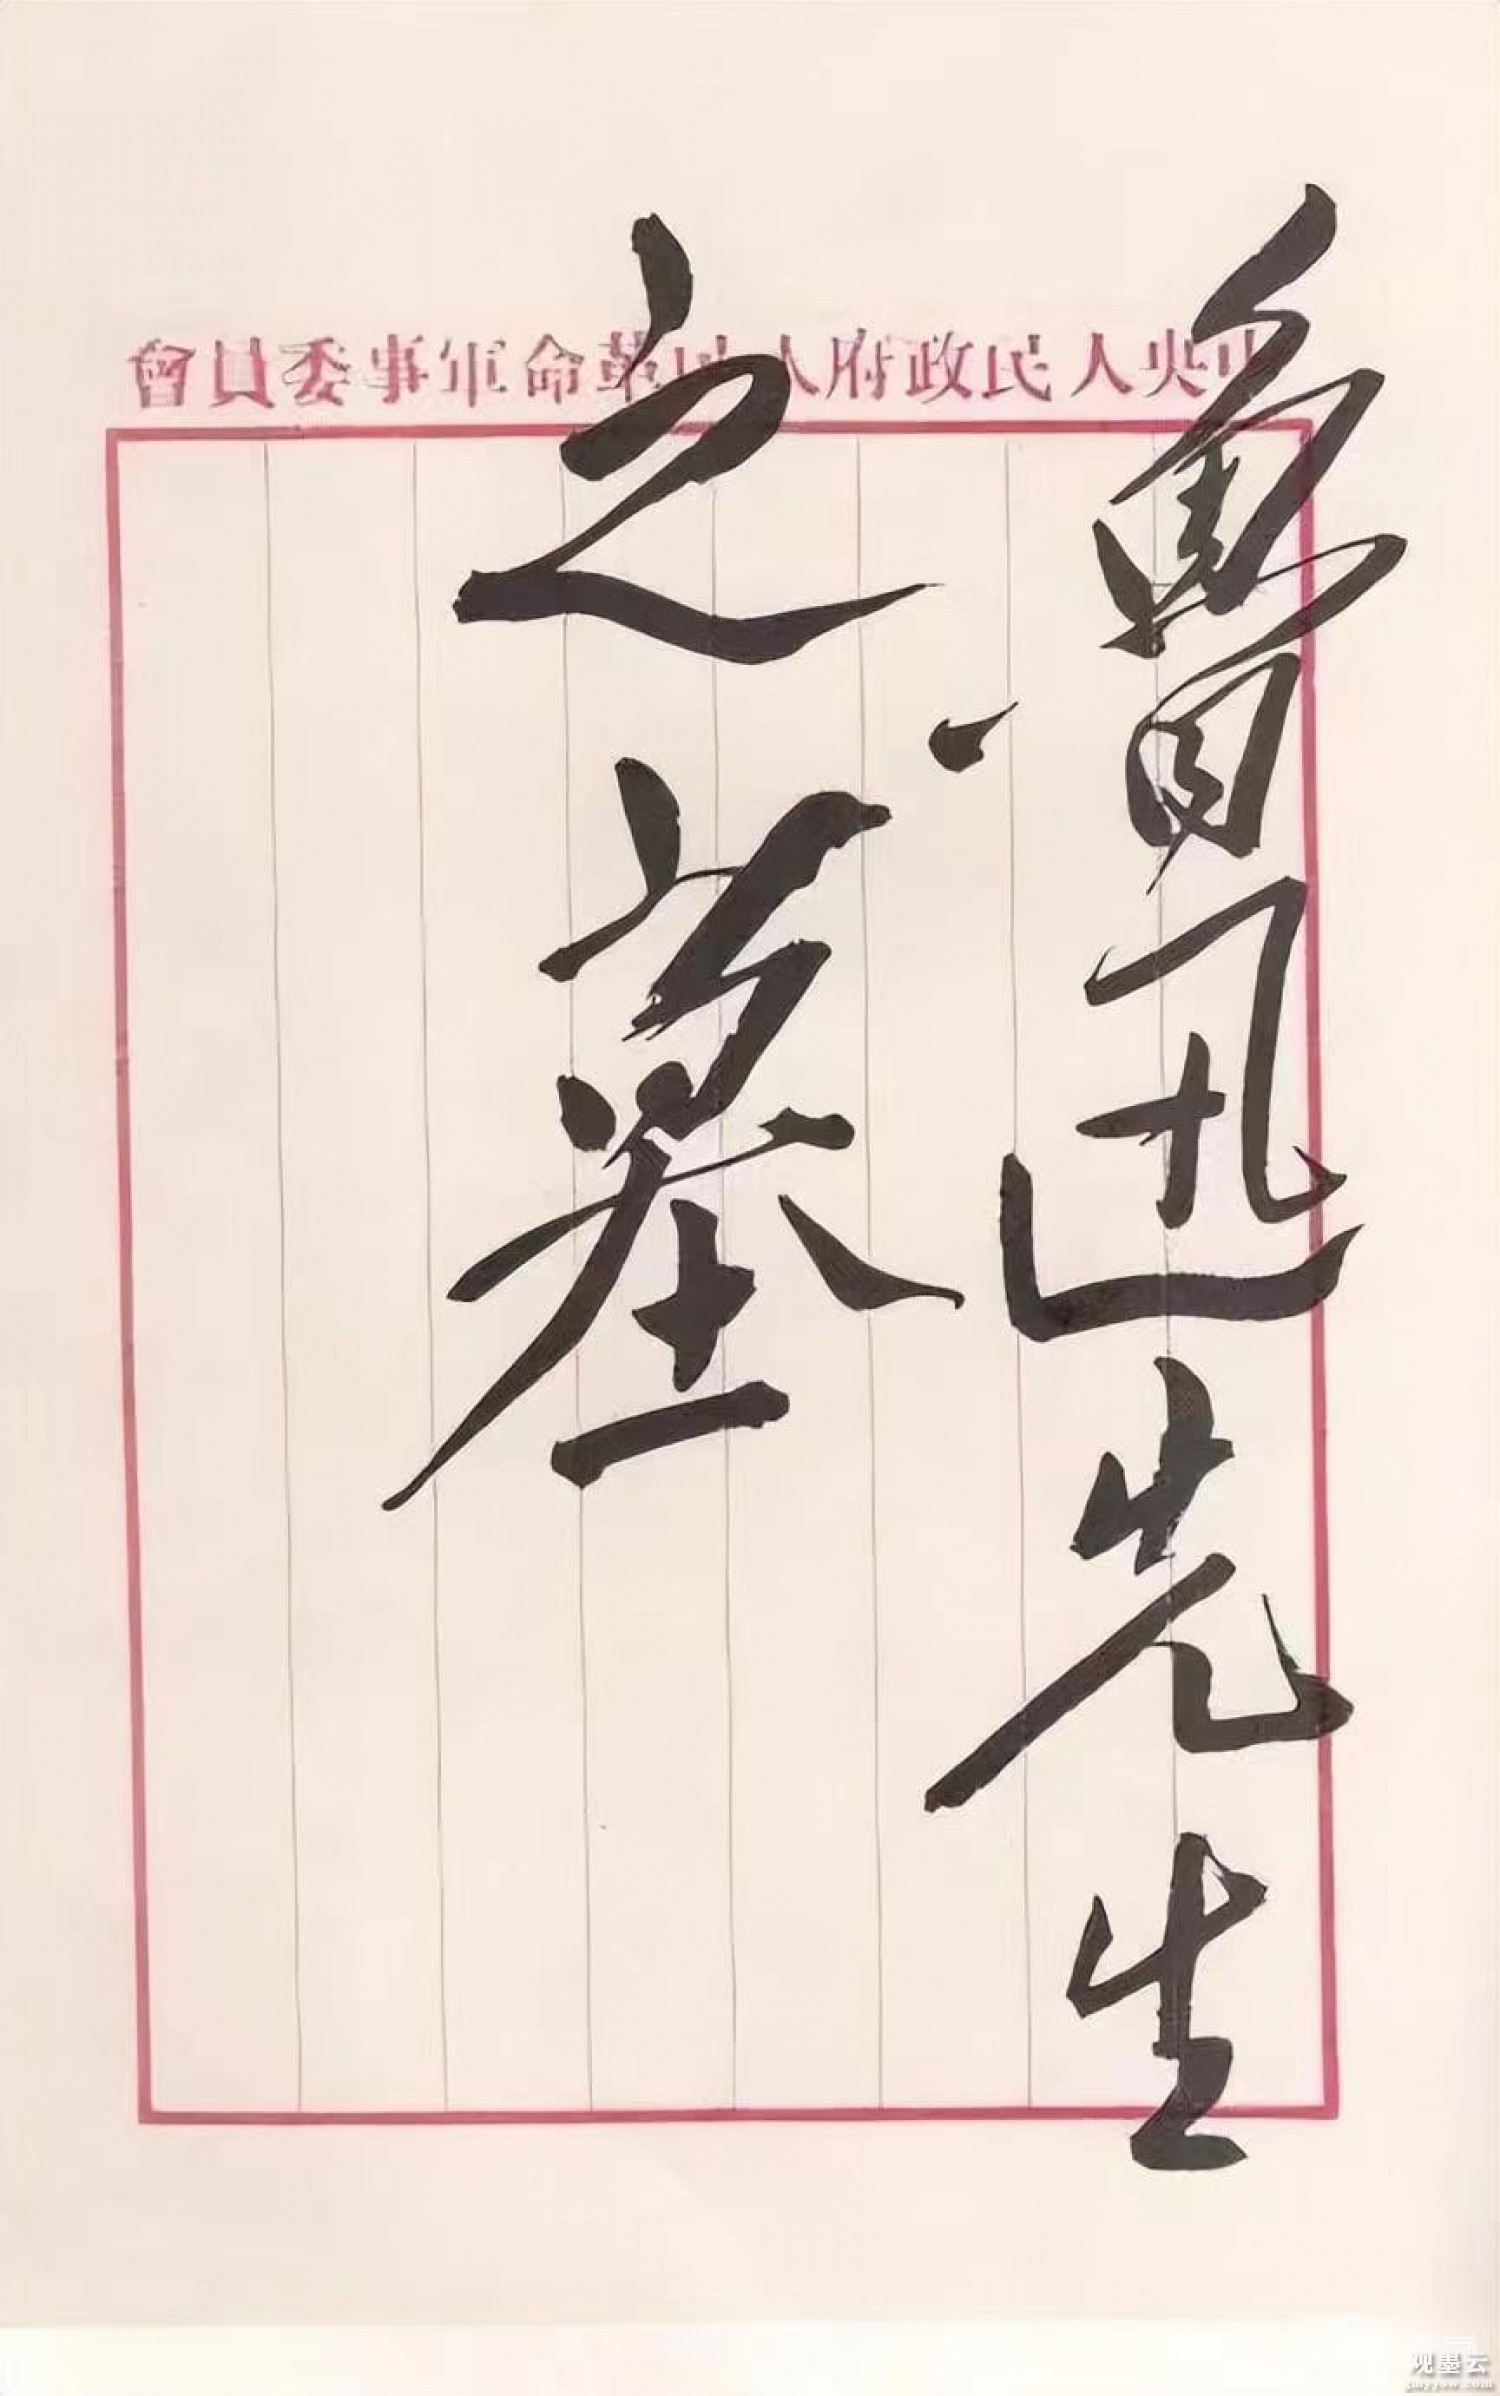 中央人民政府人民革命軍事委員會
魯迅先生
之墓
观墨云
gmyyow.com